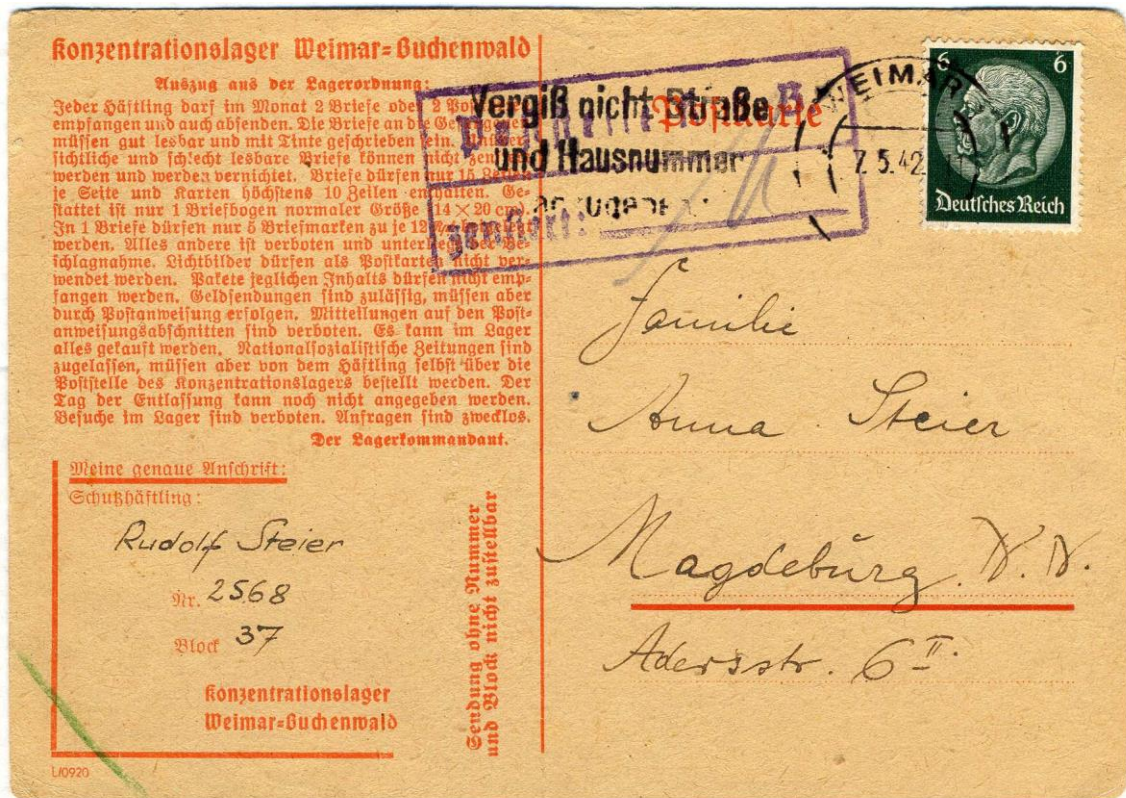 Konzentrationslager Weimar=Buchenwald
Auszug aus der Lagerordnung:
Jeder Häftling darf im Monat 2 Briefe oder 2
empfangen und auch absenden. Die Briefe an die
müssen gut lesbar und mit Tinte geschrieben sein.
sichtliche und schlecht lesbare Briefe können nicht
werden und werden vernichtet. Briefe dürfen nur 15
je Seite und Karten höchstens 10 Zeilen enthalten. Ge-
stattet ist nur 1 Briefbogen normaler Größe (14×20 cm).
In 1 Briefe dürfen nur 5 Briefmarken zu je 12
werden. Alles andere ist verboten und unterliegt der Be-
schlagnahme. Lichtbilder dürfen als Postkarten nicht ver-
wendet werden. Pakete jeglichen Inhalts dürfen nicht emp-
fangen werden. Geldsendungen sind zulässig, müssen aber
durch Postanweisung erfolgen. Mitteilungen auf den Post-
anweisungsabschnitten sind verboten. Es kann im Lager
alles gekauft werden. Nationalsozialistische Zeitungen sind
zugelassen, müssen aber von dem Häftling selbst über die
Poststelle des Konzentrationslagers bestellt werden. Der
Tag der Entlassung kann noch nicht angegeben werden.
Besuche im Lager sind verboten. Anfragen sind zwecklos.
Der Lagerkommandant.
Meine genaue Anschrift:
Schutzhäftling:
Rudolf Steier
Nr. 2568
Block 37
Konzentrationslager
Weimar=Buchenwald
L/0920
Sendung ohne Nummer
und Block nicht zustellbar
Postkarte
Vergiß nicht Straße
und Hausnummer
anzugeben
zensiert:
WEIMAR
7.5.42
6 6
Deutsches Reich
Familie
Anna Steier
Magdeburg. N. N.
Adersstr. 6 II.